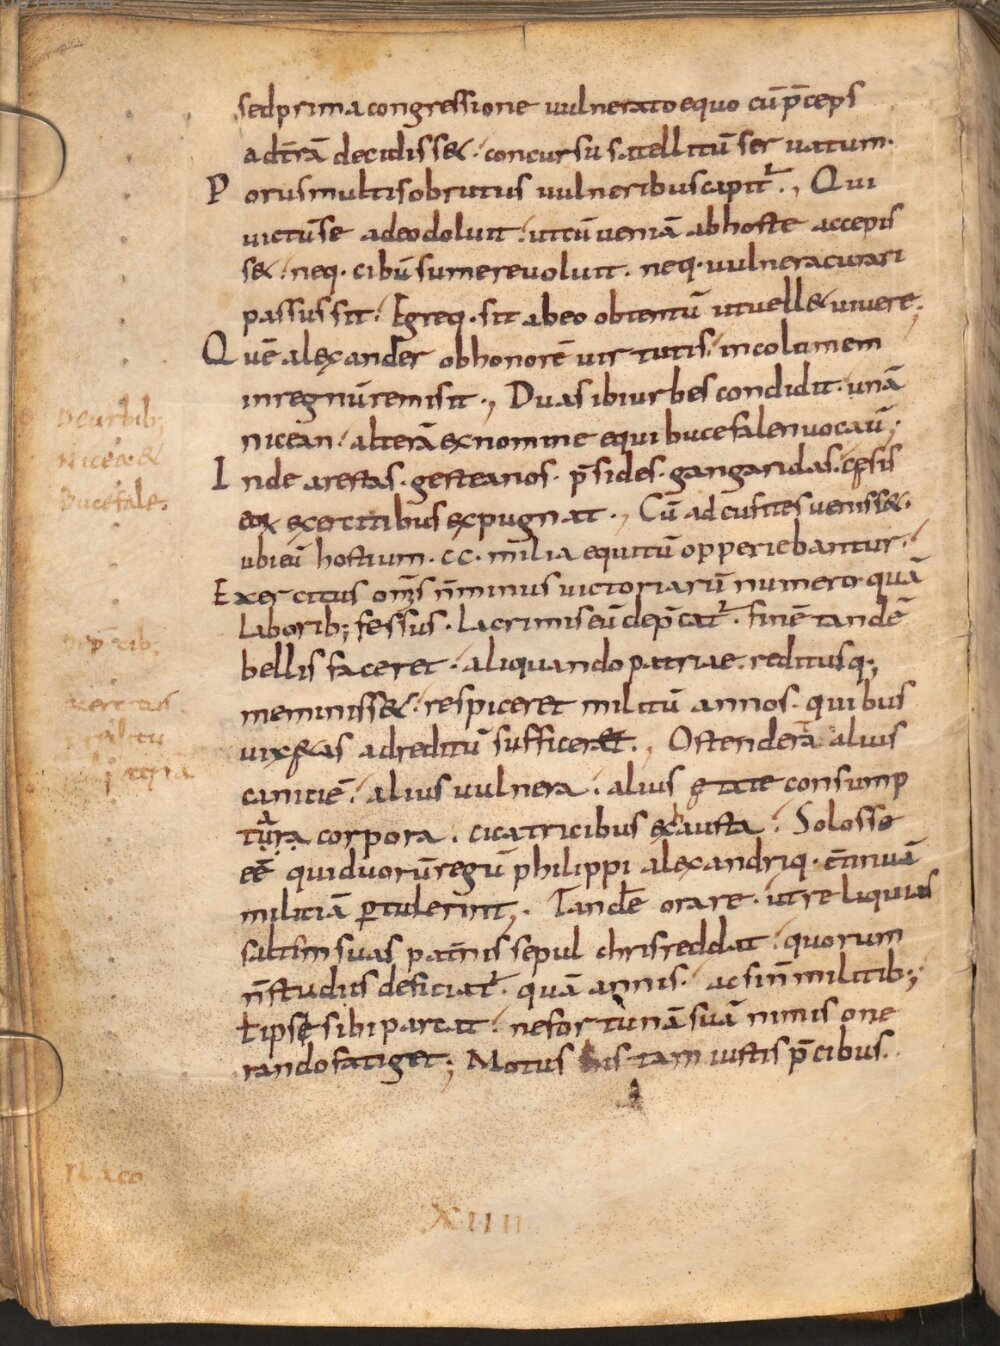 sed prima congressione vulnerato equo cū p̄ceps
ad tr̄ā decidiss&. concursu satellitū servatum.
Porus multis obrutus vulneribus capit᷑. Qui
victū se adeo doluit. ut cū veniā ab hoste accepis
s&. neq. cibū sumere voluit. neq. vulnera curari
passus sit. Egreq. sit ab eo obtentū ut vell& vivere;
Quē alexander ob honorē virtutis. incolumem
in regnū remisit., Duas ibi urbes condidit. unā
nicean. alterā ex nomine equi bucefalen vocaū;
Inde arestas. gesteanos. p̄sides. gangaridas. cęsis
eoꝝ exercitibus expugnat., Cū ad cufites veniss&.
ubi eū hostium. cc. milia equitū opperiebantur.
Exercitus om̄s n̄ minus victoriarū numero. quā
laborib; fessus. lacrimis eū dep̄cat᷑. finē tandē
bellis faceret. aliquando patriae. reditusq;
meminiss&. respiceret militū annos. quibus
vix &as ad reditū sufficeret., Ostenderā alius
canitiē. alius vulnera. alius ętate consump
tura corpora. cicatricibus exhausta. Solos se
eē qui duorū regū philippi alexandriq. c̄tinuā
miliciā ꝑtulerint,. Tandē orare. ut reliquias
saltim suas pat̄nis sepulchris reddat. quorum
n̄ studiis deficiat᷑. quā annis. ac si n̄ militib;
ł ipse sibi parcat. ne fortunā suā nimis one
rando fatiget; Motus his tam iustis p̄cibus.
De urbib;
Nicea &
Bucefale.
De p̄cib;
XIIII